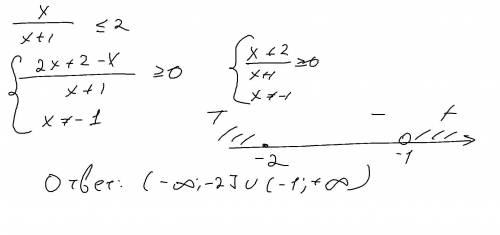 x/(x+1) ≤ 2
{ (2x+2-x)/(x+1) ≥0
x≠-1
{ (x+2)/(x+1) ≥0
x≠-1
+ - +
-2 -1
Ответ: (-∞;-2]∪(-1;+∞)